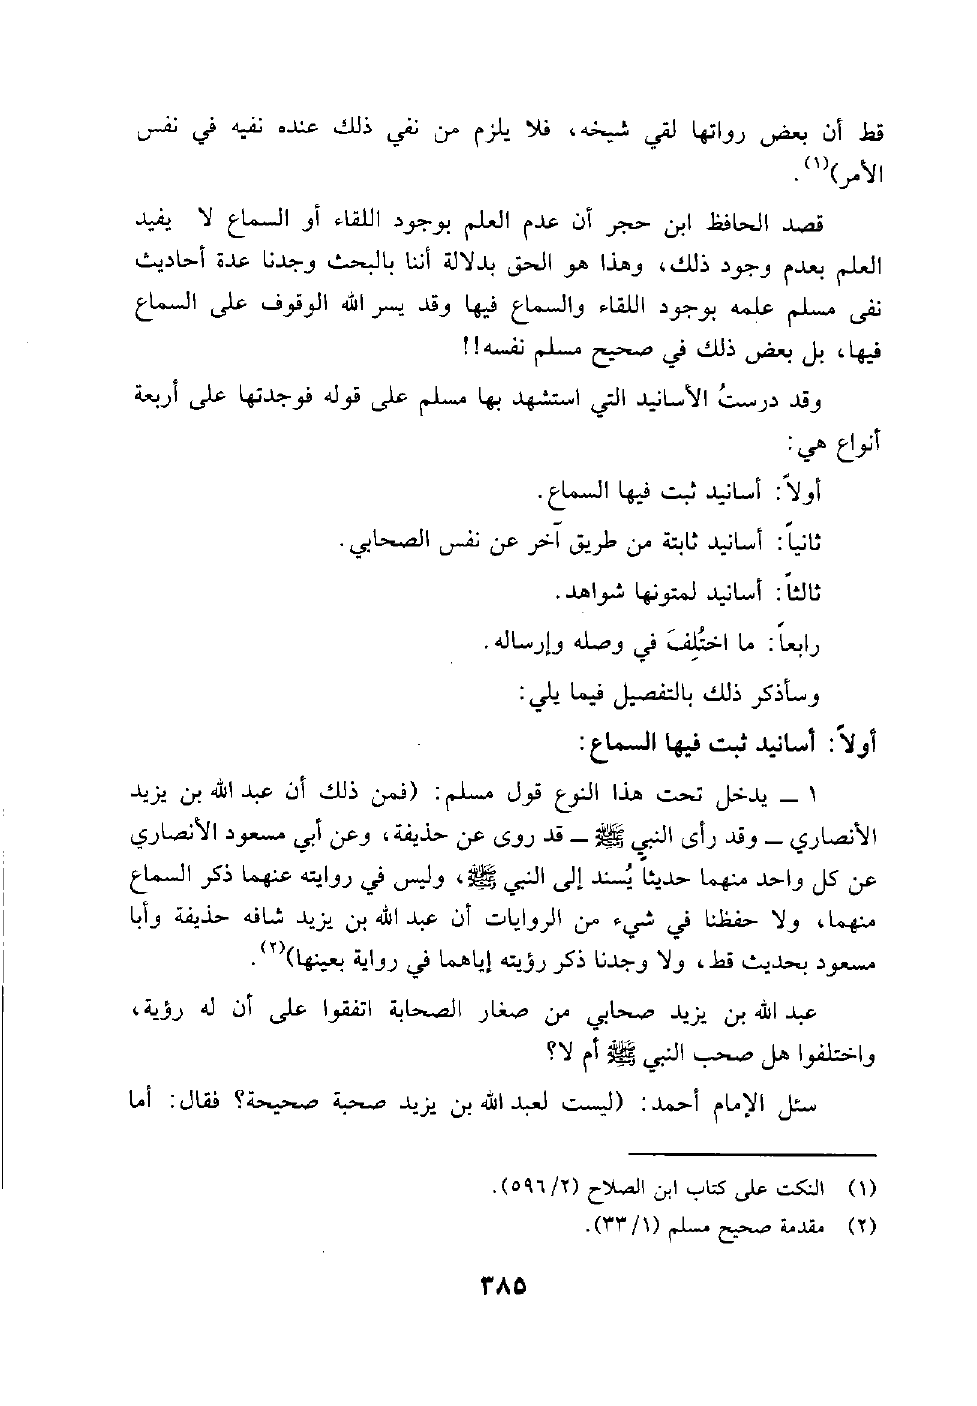 قط أن بعض رواتها لقي شيخه، فلا يلزم من نفي ذلك عنده نفيه في نفس
الأمر)(١).
قصد الحافظ ابن حجر أن عدم العلم بوجود اللقاء أو السماع لا يفيد
العلم بعدم وجود ذلك، وهذا هو الحق بدلالة أننا بالبحث وجدنا عدة أحاديث
نفى مسلم علمه بوجود اللقاء والسماع فيها وقد يسر الله الوقوف على السماع
فيها، بل بعض ذلك في صحيح مسلم نفسه!!
وقد درستُ الأسانيد التي استشهد بها مسلم على قوله فوجدتها على أربعة
أنواع هي:
أولاً: أسانيد ثبت فيها السماع.
ثانياً: أسانيد ثابتة من طريق آخر عن نفس الصحابي.
ثالثاً: أسانيد لمتونها شواهد.
رابعاً: ما اختُلِفَ في وصله وإرساله.
وسأذكر ذلك بالتفصيل فيما يلي:
أولاً: أسانيد ثبت فيها السماع:
١ ـ يدخل تحت هذا النوع قول مسلم: (فمن ذلك أن عبد الله بن يزيد
الأنصاري ـ وقد رأى النبي ﷺ ـ قد روى عن حذيفة، وعن أبي مسعود الأنصاري
عن كل واحد منهما حديثاً يُسند إلى النبي ﷺ، وليس في روايته عنهما ذكر السماع
منهما، ولا حفظنا في شيء من الروايات أن عبد الله بن يزيد شافه حذيفة وأبا
مسعود بحديث قط، ولا وجدنا ذكر رؤيته إياهما في رواية بعينها)(٢).
عبد الله بن يزيد صحابي من صغار الصحابة اتفقوا على أن له رؤية،
واختلفوا هل صحب النبي ﷺ أم لا؟
سئل الإمام أحمد: (ليست لعبد الله بن يزيد صحبة صحيحة؟ فقال: أما
(١) النكت على كتاب ابن الصلاح (٥٩٦/٢).
(٢) مقدمة صحيح مسلم (٣٣/١).
٣٨٥